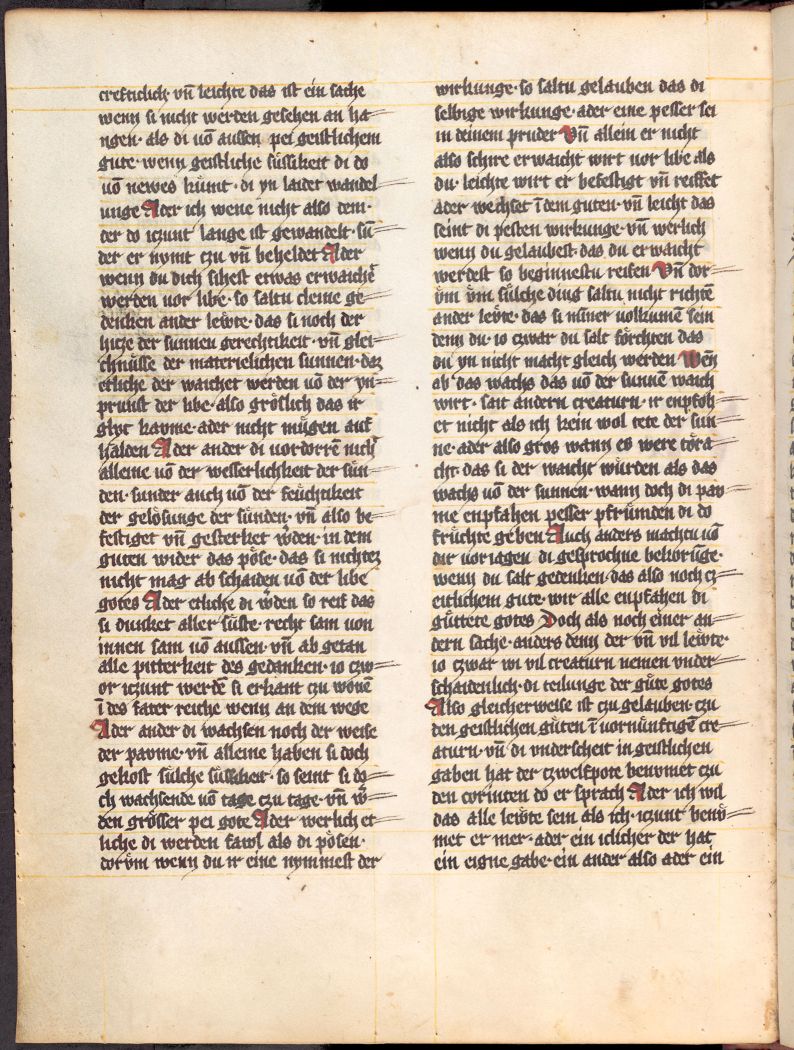 crefticlich vn̄ leichte das ist ein sache
wenn si nicht werden gesehen an ha-
ngen· als di uō aussen pei geistlichem
gute· wenn geistliche sussikeit di do
uō newes kumt· di yn laidet wandel
unge Ader ich wene nicht also dem·
der do iczunt lange ist gewandelt· sun-
der er nymt czu vn̄ beheldet Ader
wenn du dich sihest etwas erwaichē
werden uor libe· so saltu cleine ge-
denken ander lewte· das si noch der
hicze der sunnen gerechtikeit· vn̄ glei-
chnusse der materielichen sunnen· daz
etliche der waichet werden uō der yn-
prunst der libe· also groslich das ir
glyt kavme· ader nicht mugen auf
halden Ader ander di uordorrē nich
alleine uō der wesserlichkeit der sun-
den· sunder auch uō der feuchtikeit
der gelosunge der sunden· vn̄ also be-
festiget vn̄ gesterket w̄den· in dem
guten wider das pose· das si nichtez
nicht mag ab schaiden uō der libe
gotes Ader etliche di w̄den so reif das
si dunket aller suste· recht sam von
innen sam uō aussen· vn̄ ab getan
alle pitterkeit des gedanken· io czw-
or iczunt werdē si erkant czu wonē
ī des fater reiche wenn an dem wege
Ader ander di wachsen noch der weise
der pavme· vn̄ alleine haben si doch
gekost sulche sussikeit· so seint si do-
ch wachsende uō tage czu tage· vn̄ w̄-
den grosser pei gote Ader werlich et-
liche di werden fawl als di posen·
dorum wenn du ir eine nymmest der
wirkunge· so saltu gelauben das di
selbige wirkunge· ader eine pesser sei
in deinem pruder Vn̄ allein er nicht
also schire erwaicht wirt uor libe als
du· leichte wirt er befestigt vn̄ reiffet
ader wechset ī dem guten· vn̄ leicht das
seint di pesten wirkunge· vn̄ werlich
wenn du gelaubest· das du erwaicht
werdest so beginnestu reifen Vn̄ dor-
um um sulche ding saltu nicht richtē
ander lewte· das si minner uolkumē sein
denn du· io czwar du salt forchten das
du yn nicht macht gleich werden Wen̄
ab das wachs das uō der sunnē waich
wirt· sait andern creaturn· ir enpfoh-
et nicht als ich kein wol tete der sun-
ne· ader also gros wann es were tora-
cht· das si der waicht wurden als das
wachs uō der sunnen· wann doch di pav-
me enpfahen pesser pfrumden di do
fruchte geben Auch anders machtu uō
dir uoriagen di gesprochne bekorūge·
wenn du salt gedenken· das also noch cz-
eitlichem gute· wir alle enpfahen di
guttete gotes Doch als noch einer an-
dern sache· anders denn der vn̄ vil lewte·
io czwar wi vil creaturn nemen vnder-
schaidenlich· di teilunge der gute gotes
Also gleicherweise ist czu gelauben· czu
den geistlichen guten ī uornunftigē cre-
aturn· vn̄ di vnderscheit in geistlichen
gaben hat der czwelfpote benvmet czu
den corinten do er sprach Ader ich wil
das alle lewte sein als ich· iczunt benv-
met er mer· ader ein iclicher der hat
ein eigne gabe· ein ander also ader ein